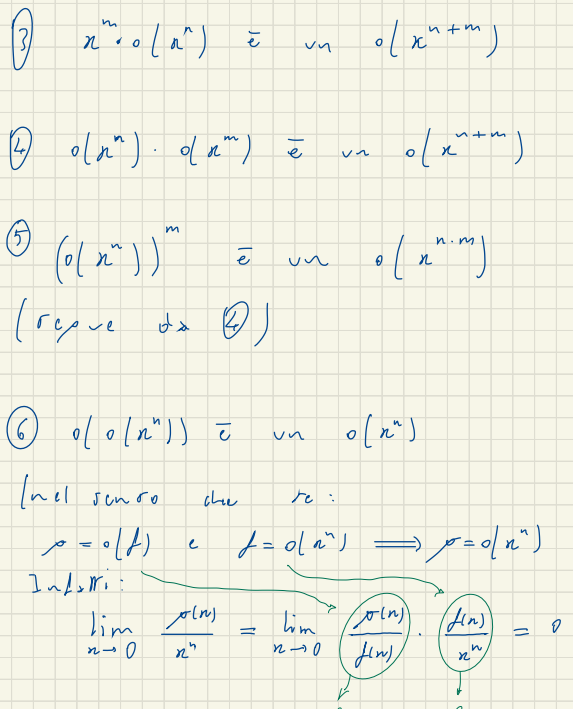 ③ x^m · o(x^n) è un o(x^{n+m})
④ o(x^n) · o(x^m) è un o(x^{n+m})
⑤ (o(x^n))^m è un o(x^{n·m})
(segue da ④)
⑥ o(o(x^n)) è un o(x^n)
(nel senso che se:
g = o(f) e f = o(x^n) ⟹ g = o(x^n)
Infatti:
lim_{x→0} g(x)/x^n = lim_{x→0} g(x)/f(x) · f(x)/x^n = 0